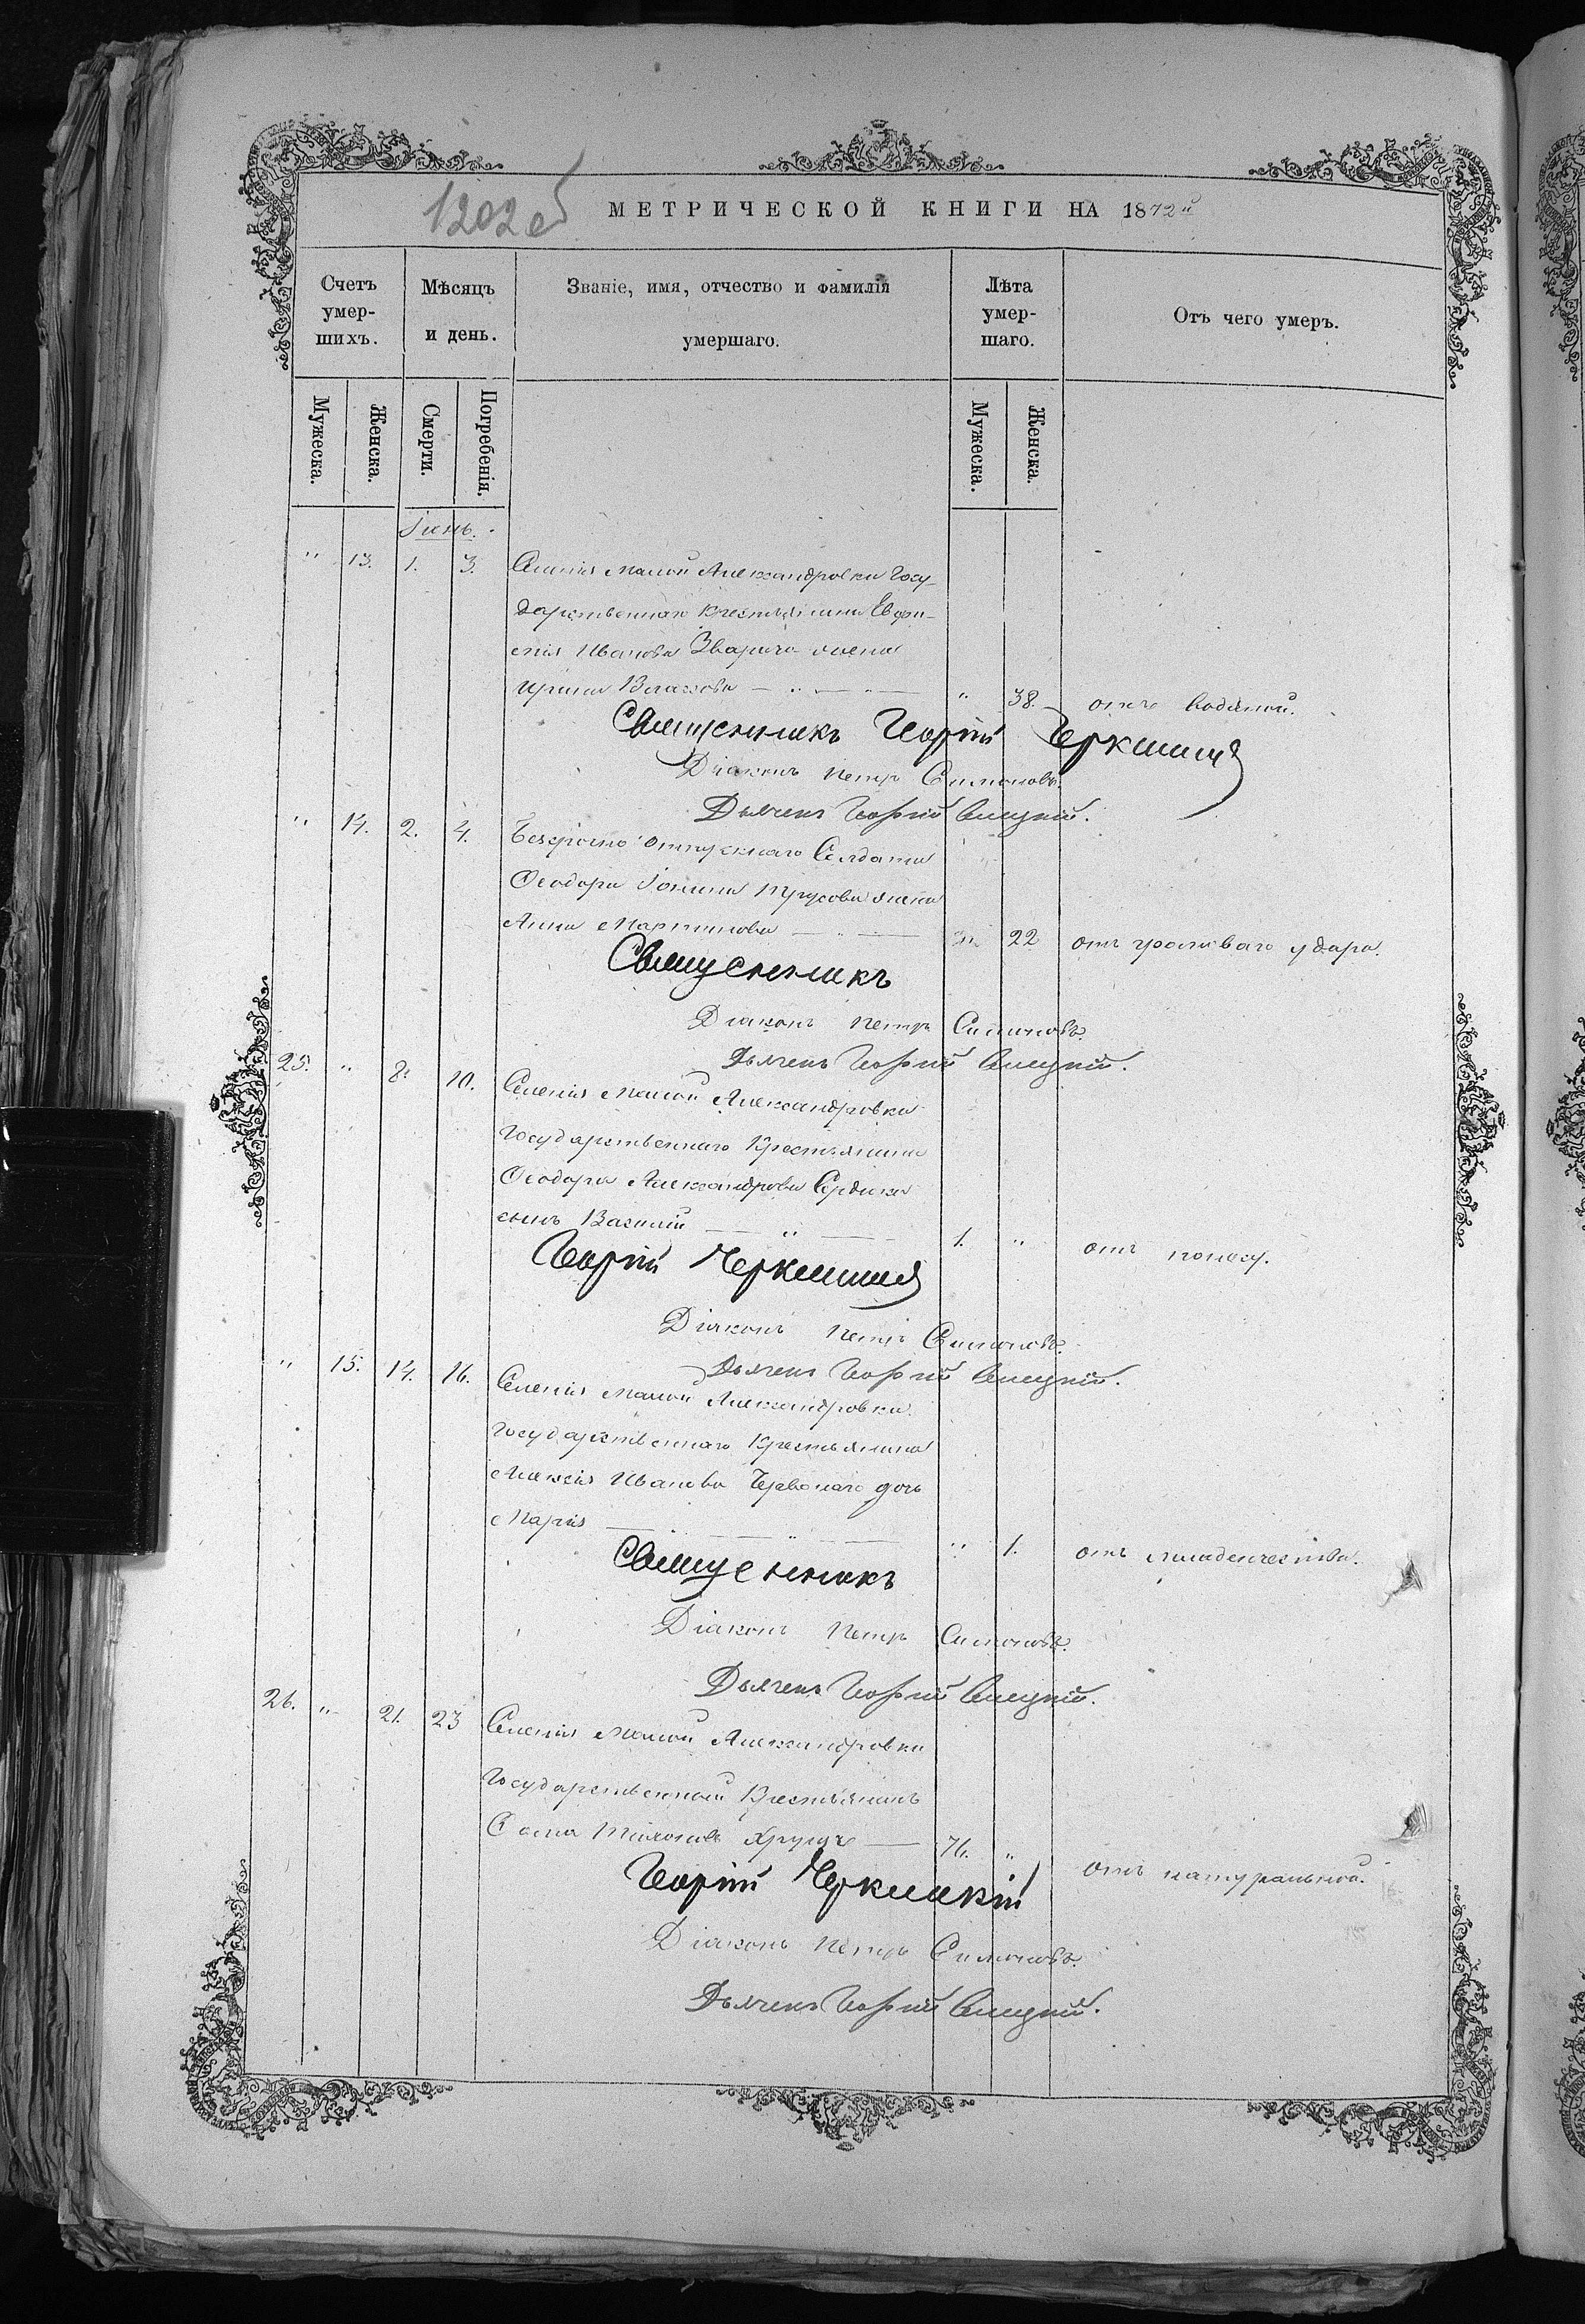 1202 об
МЕТРИЧЕСКОЙ КНИГИ НА 1872й
Счетъ умер- шихъ.
Мѣсяцъ и день.
Званіе, имя, отчество и фамилія умершаго.
Лѣта умер- шаго.
Отъ чего умеръ.
Мужеска.
Женска.
Смерти.
Погребенія.
Мужеска.
Женска.
Іюнь.
" 13. 1. 3. Селенія Малой Александровки Госу-
дарственнаго Крестьянина Евфи-
мія Иванова Зварича жена
Ирина Власова — " — " — " 38. отъ водяной.
Священникъ Георгій
Діаконъ Петръ Симоновъ.
Дьячекъ Георгій
" 14. 2. 4. Безсрочно отпускнаго Солдата
Ѳеодора Іонина Трусова жена
Анна Мартинова — " — 22 отъ удара.
Священникъ
Діаконъ Петръ Симоновъ.
Дьячекъ Георгій
25. " 8. 10. Селенія Малой Александровки
Государственнаго Крестьянина
Ѳеодора Александрова Сердюка
сынъ Василій — " — 1. " отъ поносу.
Георгій
Діаконъ Петръ Симоновъ.
Дьячекъ Георгій
" 15. 14. 16. Селенія Малой Александровки
Государственнаго Крестьянина
Алексія Иванова дочь
Марія — " — " 1. отъ младенчества.
Священникъ
Діаконъ Петръ Симоновъ.
Дьячекъ Георгій
26. " 21. 23 Селенія Малой Александровки
Государственный Крестьянинъ
— 71. " отъ натуральной.
Георгій
Діаконъ Петръ Симоновъ.
Дьячекъ Георгій